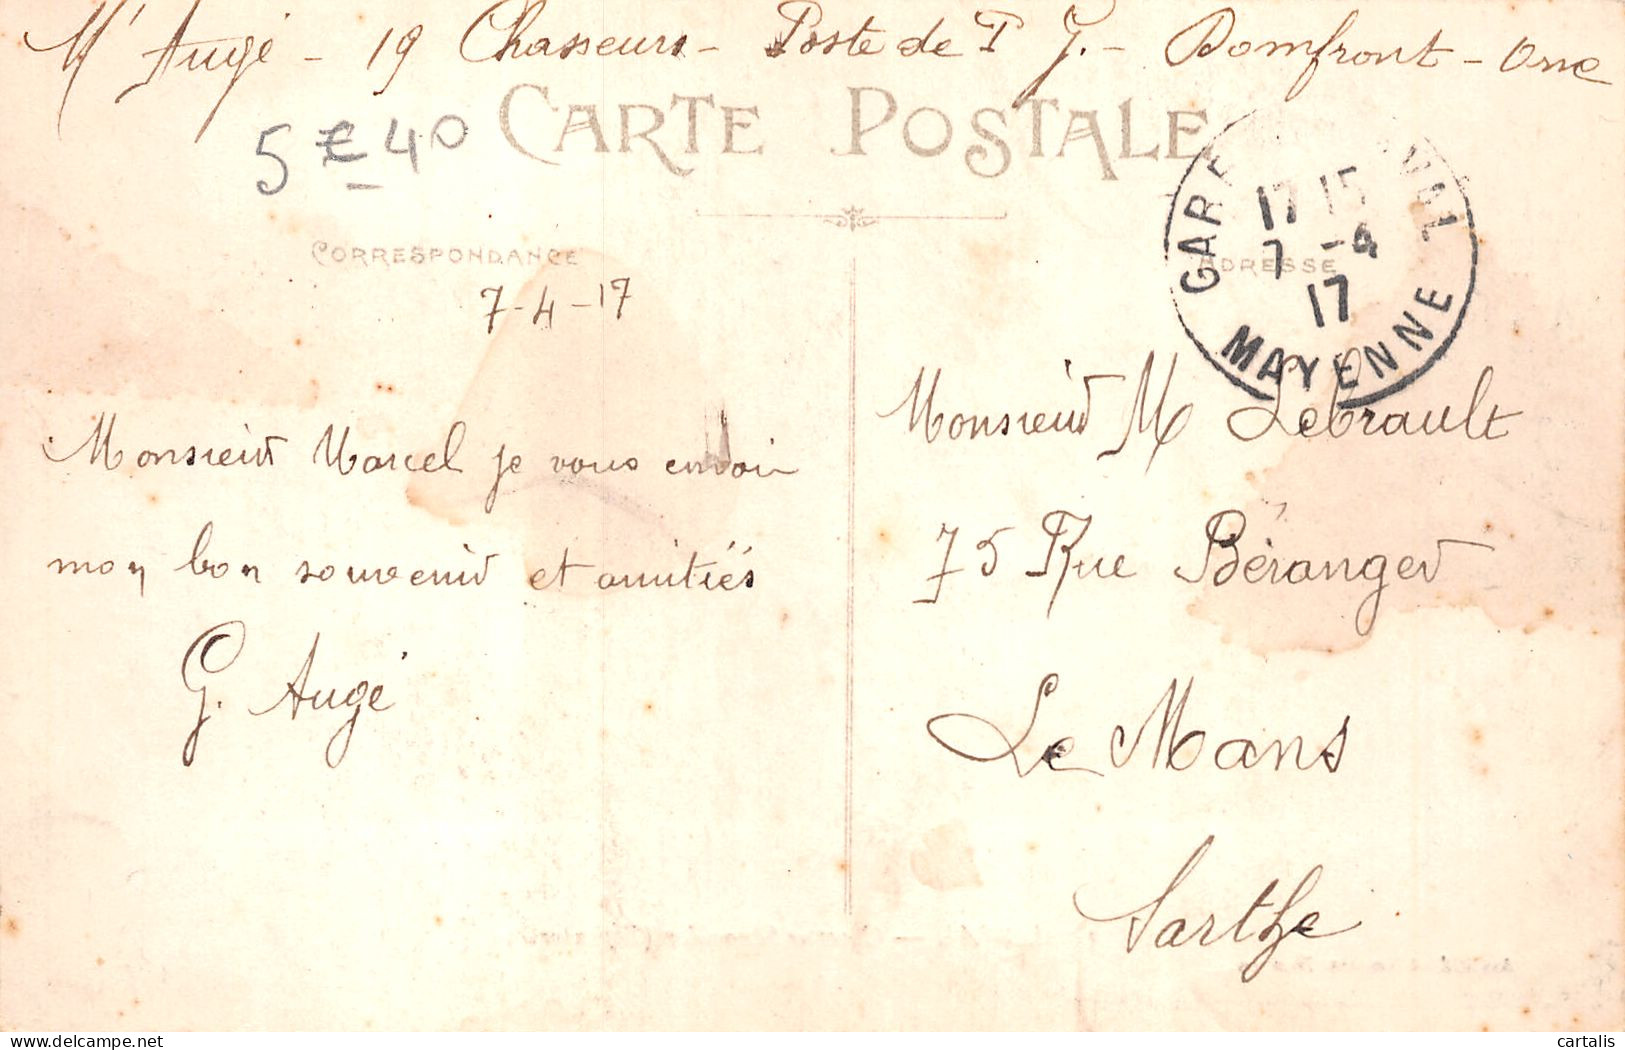 Mr Augé - 19 Chasseurs - Poste de P G. - Domfront - Orne
CARTE POSTALE
5 € 40
CORRESPONDANCE
ADRESSE
GARE
17 15
7 -4
17
MAYENNE
7-4-17
Monsieur Marcel je vous envoie
mon bon souvenir et amitiés
G. Augé
Monsieur M Lebrault
75 Rue Béranger
Le Mans
Sarthe
cartalis
delcampe.net